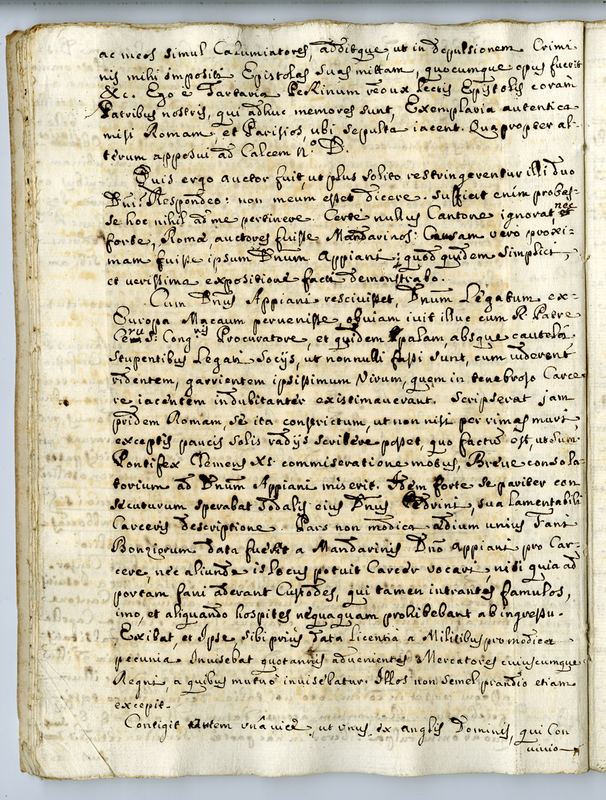 ac meos simul Calumiatores, additque ut in depulsionem Crimi
nis mihi impositi Epistolas suas mittam, quocumque opus fuerit
&c. Ego e Tartaria Pekinum redux lectis Epistolis coram
Patribus nostris, qui adhuc memores sunt, Exemplaria autentica
misi Romam, et Parisios, ubi sepulta iacent. Quapropter al-
terum apposui ad Calcem n.º D.
Quis ergo auctor fuit, ut plus solito restringerentur illi duo
Dni? Respondeo: non meum esset dicere. Sufficit enim probas-
se hoc nihil ad me pertinere. Certe nullus Cantone ignorat, nec
forte, Romæ auctores fuisse Mandarinos: Causam vero proxi-
mam fuisse ipsum Dnum Appiani; quod quidem simplici,
et verissima expositione facti demonstrabo.
Cum Dnus Appiani rescivisset, Dnum Legatum ex
Europa Macaum pervenisse, obviam ivit illuc cum R. Patre
Ceru S. Congnis Procuratore, et quidem palam, absque cautela
stupentibus Legati Socijs, ut nonnulli fassi sunt, cum viderent
ridentem, garrientem ipsissimum Virum, quem in tenebroso Carce
re iacentem indubitanter existimaverant. Scripserat jam
pridem Romam, se ita constrictum, ut non nisi per rimas muri,
exceptis paucis solis radijs scribere posset, quo factum est, ut Sum.
Pontifex Clemens XI. commiseratione motus, Breve consola-
torium ad Dnum Appiani miserit. Idem forte se pariter con
secuturum sperabat Sodalis eius Dnus Pedrini, sua lamentabili
Carceris descriptione. Pars non modica ædium unius Fani
Bonziorum data fuerat a Mandarinis Dno Appiani pro Car-
cere, nec aliunde is locus potuit Carcer vocari, nisi quia ad
portam fani aderant Custodes, qui tamen intrantes famulos,
imo, et aliquando hospites nequaquam prohibebant ab ingressu.
Exibat, et Ipse sibi prius data licentia a Militibus pro modica
pecunia Invisebat quotannis advenientes Mercatores cuiuscumque
Regni a quibus mutuo invisebatur. Illos non semel prandio etiam
excepit.
Contigit autem una vice, ut unus ex anglis Dominis, qui Con
vivio